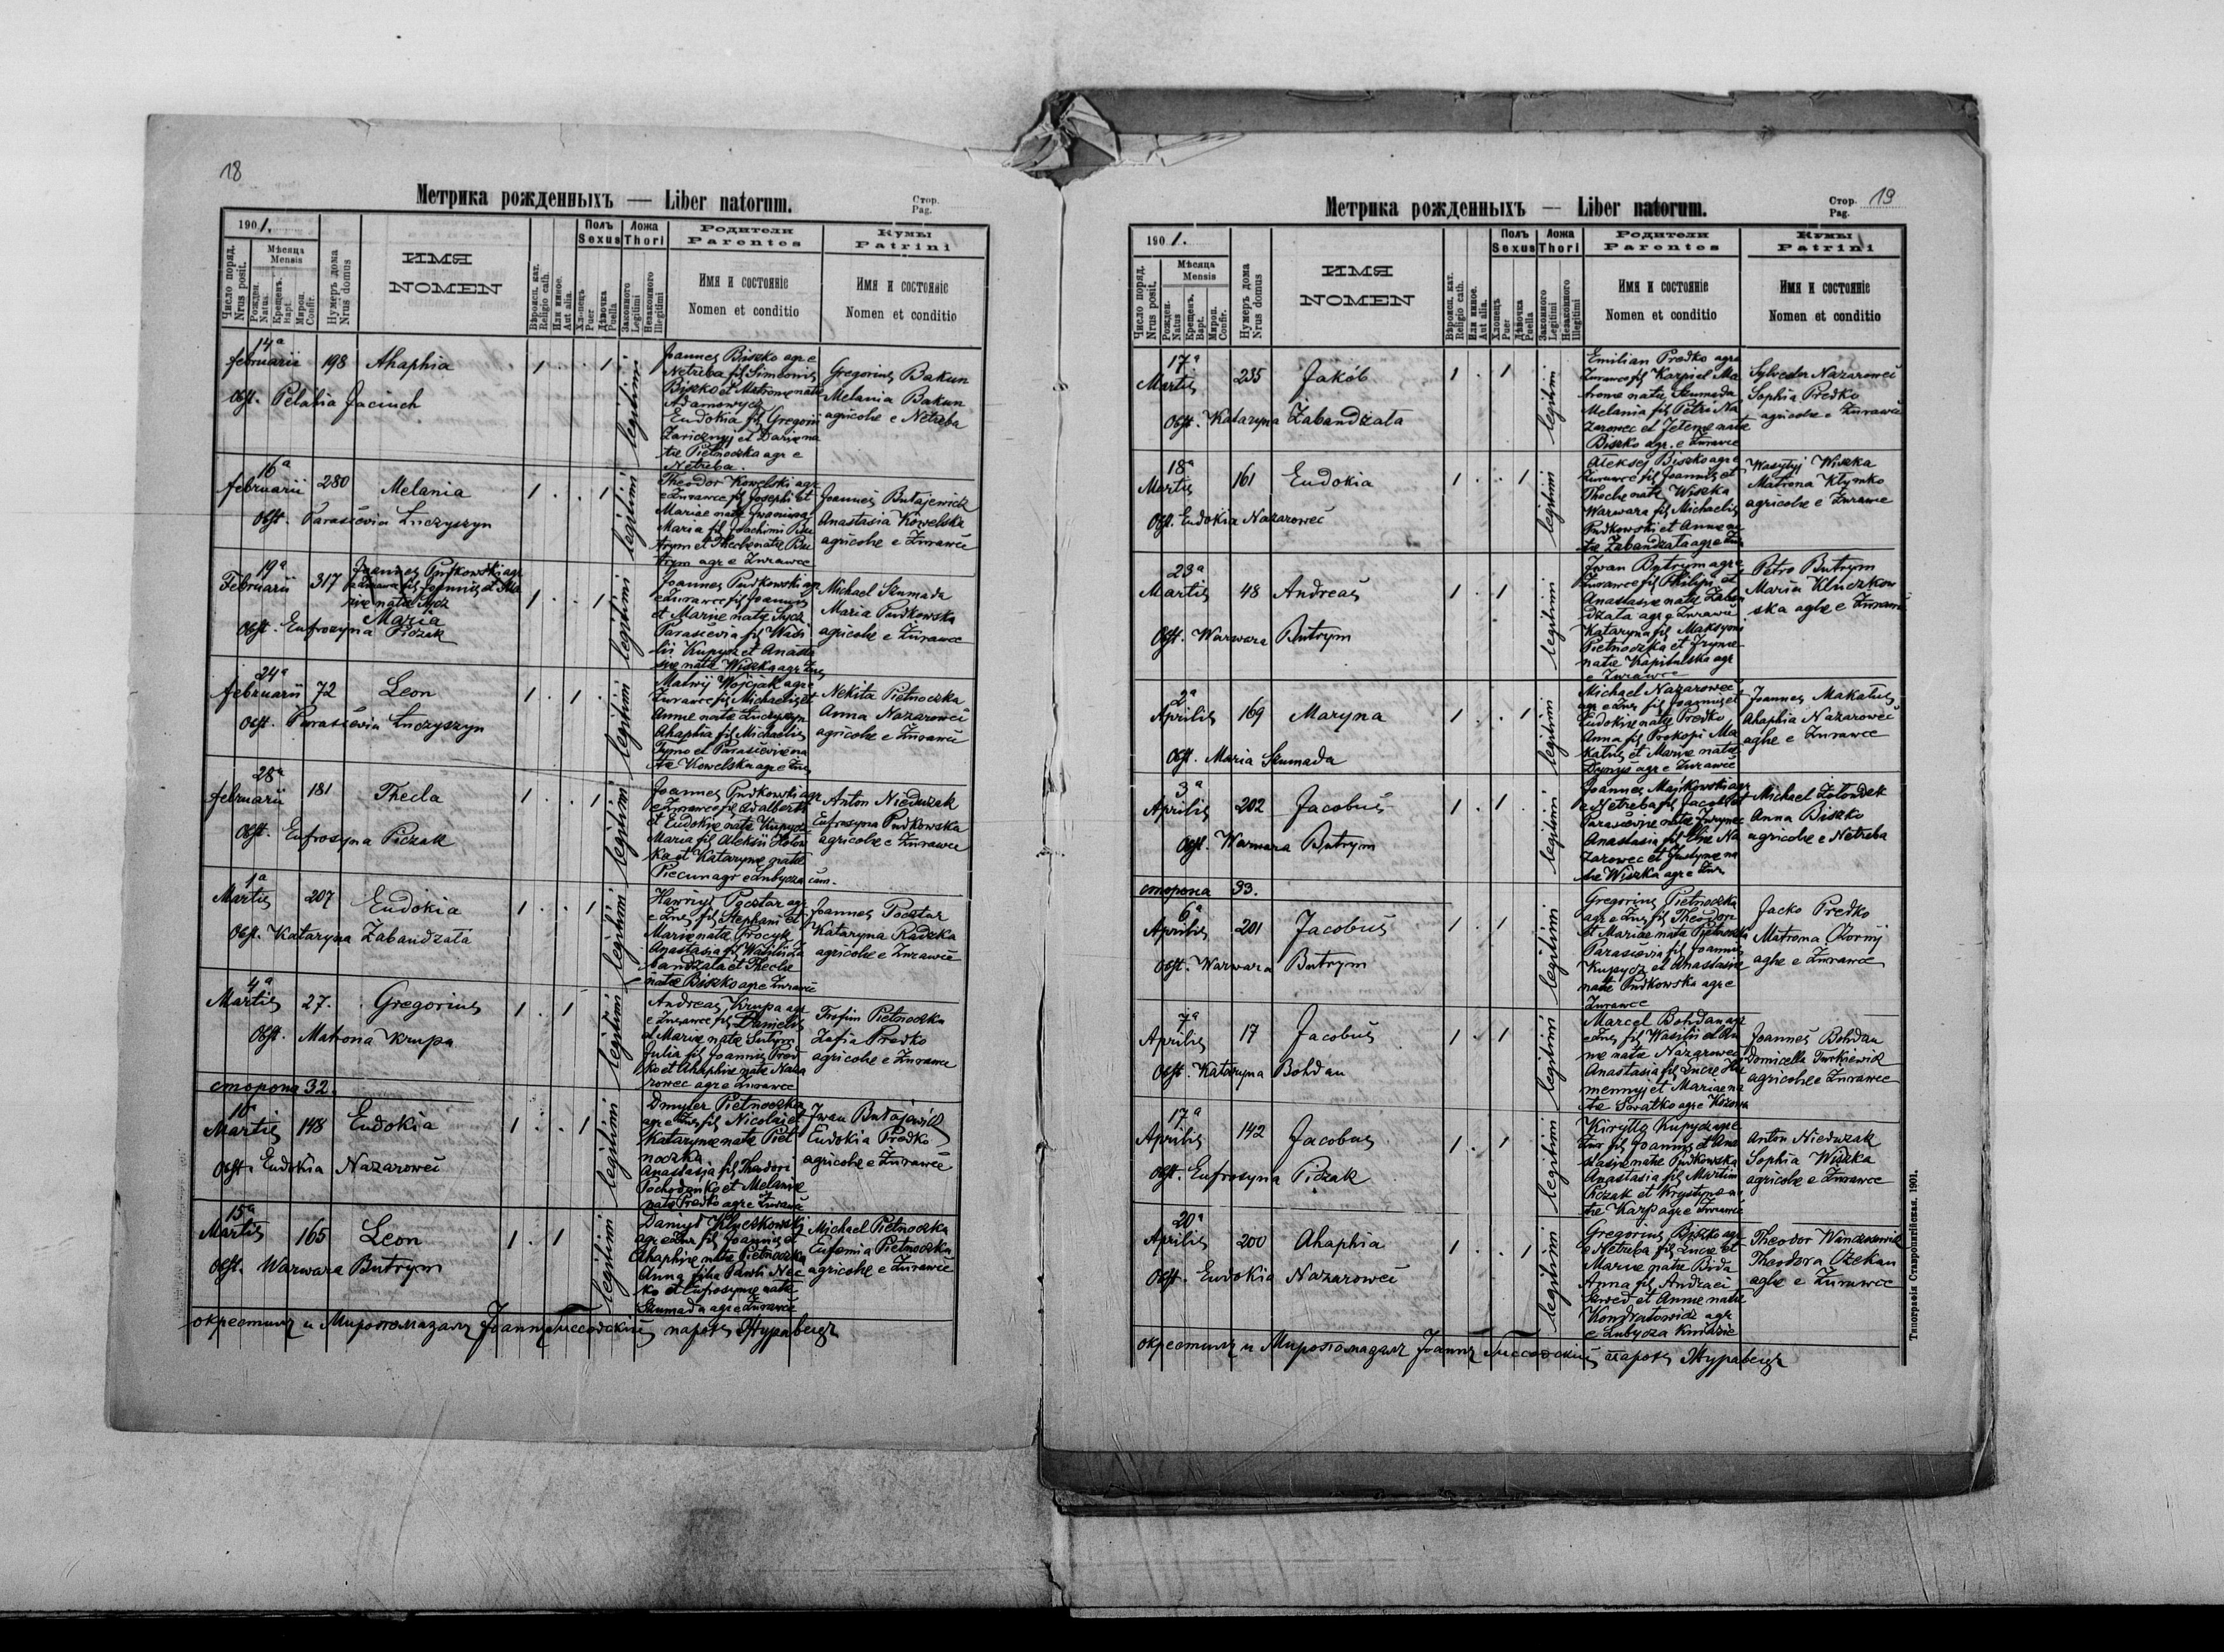 18
Метрика рожденныхъ — Liber natorum.
Стор.
Pag.
1901.
Число поряд.
Nrus posit.
Мѣсяца
Mensis
Рожден.
Natus
Крещенъ.
Bapt.
Мѵроп.
Confir.
Нумеръ дома
Nrus domus
ИМЯ
NOMEN
Вѣроисп. кат.
Religio cath.
Или иное.
Aut alia.
Полъ
Sexus
Хлопецъ
Puer
Дѣвочка
Puella
Ложа
Thori
Законного
Legitimi
Незаконного
Illegitimi
Родители
Parentes
Имя и состояніе
Nomen et conditio
Кумы
Patrini
Имя и состояніе
Nomen et conditio
14a
februarii 198 Ahaphia 1 . . 1 legitimi
Obst. Pelahia Jaciuch
Joannes Biszko agr e
Netreba fil Simeonis
Biszko et Matrone nata
Adamowycz
Eudokia fil Gregorii
Zaricznyj et Darie na
tae Pietnoczka agr e
Netreba.
Gregorius Bakun
Melania Bakun
agricolae e Netreba
16a
februarii 280 Melania 1 . . 1 legitimi
Obst. Parascevia Łuczyszyn
Theodor Kowelski agr
e Żurawce fil Josephi et
Mariae natae
Maria fil Joachimi Bu
trym et Theclae natae Bu
trym agr e Żurawce
Joannes Bułajewicz
Anastasia Kowelska
agricolae e Żurawce
19a
Februarii 317
Joannes Pudkowski agr
Maria 1 . . 1 legitimi
Obst. Eufrosyna Piczak
Joannes Pudkowski agr
e Żurawce fil Joannis
et Mariae natae Sycz
Parascevia fil Wasi
lii Kupycz et Anasta
siae natae Wiszka agr Żur
Michael Szumada
Maria Pudkowska
agricolae e Żurawce
24a
februarii 72 Leon 1 . 1 . legitimi
Obst. Parascevia Łuczyszyn
Matwij Wojcjak agr e
Żurawce fil Michaelis et
Annae natae Łuczyszyn
Ahaphia fil Michaelis
Tymo et Parasceviae na
tae Kowelska agr e Żur
Nekita Pietnoczka
Anna Nazarowec
agricolae e Żurawce
28a
februarii 181 Thecla 1 . . 1 legitimi
Obst. Eufrosyna Piczak
Joannes Pudkowski agr
e Żurawce fil Adalberti
et Eudokiae natae Kupycz
Maria fil Aleksii Hołow
ka et Katarynae natae
Piecun agr e Lubycza cam.
Anton Nieduzak
Eufrosyna Pudkowska
agricolae e Żurawce
1a
Martis 207 Eudokia 1 . . 1 legitimi
Obst. Kataryna Żabandzała
Hawryl Pocztar agr
e Żur fil Stephani et
Mariae natae Procyk
Anastasia fil Wasilii Ża
bandzala et Theclae
natae Biszko agr e Żurawce
Joannes Pocztar
Kataryna Radzka
agricolae e Żurawce
4a
Martis 27. Gregorius 1 . 1 legitimi
Obst. Matrona Krupa
Andreas Krupa agr
e Żurawce fil Danielis
et Mariae natae
Julia fil Joannis Pred
ko et Ahaphiae natae Naza
rowec agr e Żurawce
Trofim Pietnoczka
Zofia Predko
agricolae e Żurawce
сторона 32.
10a
Martis 148 Eudokia 1 . . 1 legitimi
Obst. Eudokia Nazarowec
Dmyter Pietnoczka
agr e Żur fil Nicolai et
Katarynae natae Piet
noczka
Anastasia fil Theodori
Pochodenko et Melaniae
natae Predko agr e Żurawce
Iwan Bułajewicz
Eudokia Predko
agricolae e Żurawce
15a
Martis 165 Leon 1 . 1 legitimi
Obst. Warwara Butrym
Danijł Kluczkowski
agr e Żur fil Joannis et
Ahaphiae natae Pietnoczka
Anna filia Pawli Nec
ko et Eufrosynae natae
Szumada agr e Żurawce
Michael Pietnoczka
Eufemia Pietnoczka
agricolae e Żurawce
окрестилъ и Миропомазалъ Іоаннъ Лиссовскій парохъ Журавецъ
Метрика рожденныхъ — Liber natorum.
Стор.
Pag.
19
1901.
Число поряд.
Nrus posit.
Мѣсяца
Mensis
Рожден.
Natus
Крещенъ.
Bapt.
Мѵроп.
Confir.
Нумеръ дома
Nrus domus
ИМЯ
NOMEN
Вѣроисп. кат.
Religio cath.
Или иное.
Aut alia.
Полъ
Sexus
Хлопецъ
Puer
Дѣвочка
Puella
Ложа
Thori
Законного
Legitimi
Незаконного
Illegitimi
Родители
Parentes
Имя и состояніе
Nomen et conditio
Кумы
Patrini
Имя и состояніе
Nomen et conditio
17a
Martis 235 Jakób 1 . 1 legitimi
Obst. Kataryna Żabandżała
Emilian Predko agr e
Żurawce fil Karpiel Ma
tronae natae Szumada
Melania fil Petri Na
zarowec et Jelenae natae
Biszko agr. e Żurawce
Sylvester Nazarowec
Sophia Predko
agricolae e Żurawce
18a
Martis 161 Eudokia 1 . . 1 legitimi
Obst. Eudokia Nazarowec
Aleksej Biszko agr e
Żurawce fil Joannis et
Theclae natae Wiszka
Warwara fil Michaelis
Pudkowski et Annae na
tae Żabandzała agr e Żur
Wasylyj Wiszka
Matrona Klymko
agricolae e Żurawce
23a
Martis 48 Andreas 1 . 1 legitimi
Obst. Warwara Butrym
Iwan Butrym agr e
Żurawce fil Philipi et
Anastasiae natae Żaban
dzała agr e Żurawce
Kataryna fil Maksymi
Pietnoczka et Irynae
natae Kapitulska agr
e Żurawce
Petro Butrym
Maria Kluczkow
ska aglae e Żurawce
2a
Aprilis 169 Maryna 1 . . 1 legitimi
Obst. Maria Szumada
Michael Nazarowec
agr e Żur fil Joannis et
Eudokiae natae Predko
Anna fil Prokopi Ma
katus et Mariae natae
Dynys agr e Żurawce
Joannes Makatus
Ahaphia Nazarowec
aglae e Żurawce
3a
Aprilis 202 Jacobus 1 . 1 legitimi
Obst. Warwara Butrym
Joannes Majkowski agr
e Netreba fil Jacobi et
Parasceviae natae
Anastasia fil Eliae Na
zarowec et Justynae na
tae Wiszka agr e Żur
Michael Żołondek
Anna Biszko
agricolae e Netreba
сторона 33.
6a
Aprilis 201 Jacobus 1 . 1 legitimi
Obst. Warwara Butrym
Gregorius Pietnoczka
agr e Żur fil Theodori
et Mariae natae Pietnoczka
Parascevia fil Joannis
Kupycz et Anastasiae
natae Pudkowska agr e
Żurawce
Jacko Predko
Matrona Czornij
aglae e Żurawce
7a
Aprilis 17 Jacobus 1 . 1 legitimi
Obst. Kataryna Bohdan
Marcel Bohdan agr
e Żur fil Wasilii et An
nae natae Nazarowec
Anastasia fil Lucae
mennyj et Mariae na
tae Swatko agr e
Joannes Bohdan
Domicella Turkiewicz
agricolae e Żurawce
17a
Aprilis 142 Jacobus 1 . 1 legitimi
Obst. Eufrosyna Piczak
Kiryłło Kupycz agr e
Żur fil Joannis et Ana
stasiae natae Pudkowska
Anastasia fil Martini
Piczak et Krystynae na
tae Karp agr e Żurawce
Anton Nieduzak
Sophia Wiszka
agricolae e Żurawce
20a
Aprilis 200 Ahaphia 1 . . 1 legitimi
Obst. Eudokia Nazarowec
Gregorius Biszko agr
e Netreba fil Lucae et
Mariae natae Bida
Anna fil Andraei
Szwed et Annae natae
Kondratowicz agr
e Lubycza Kniazie
Theodor
Theodora Czekan
aglae e Żurawce
окрестилъ и Миропомазалъ Іоаннъ Лиссовскій парохъ Журавецъ
Типографія Ставропигійская. 1901.